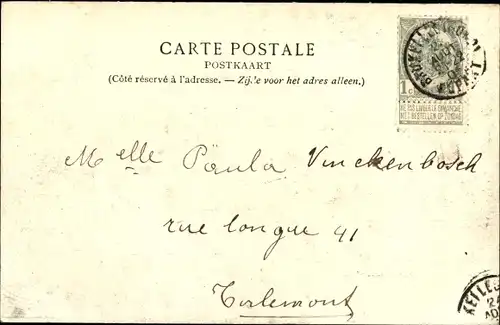 CARTE POSTALE
POSTKAART
(Côté réservé à l'adresse. — Zijde voor het adres alleen.)
1 c
NE PAS LIVRER LE DIMANCHE
NIET BESTELLEN OP ZONDAG
Melle Paula Vinckenbosch
rue longue 41
Tirlemont